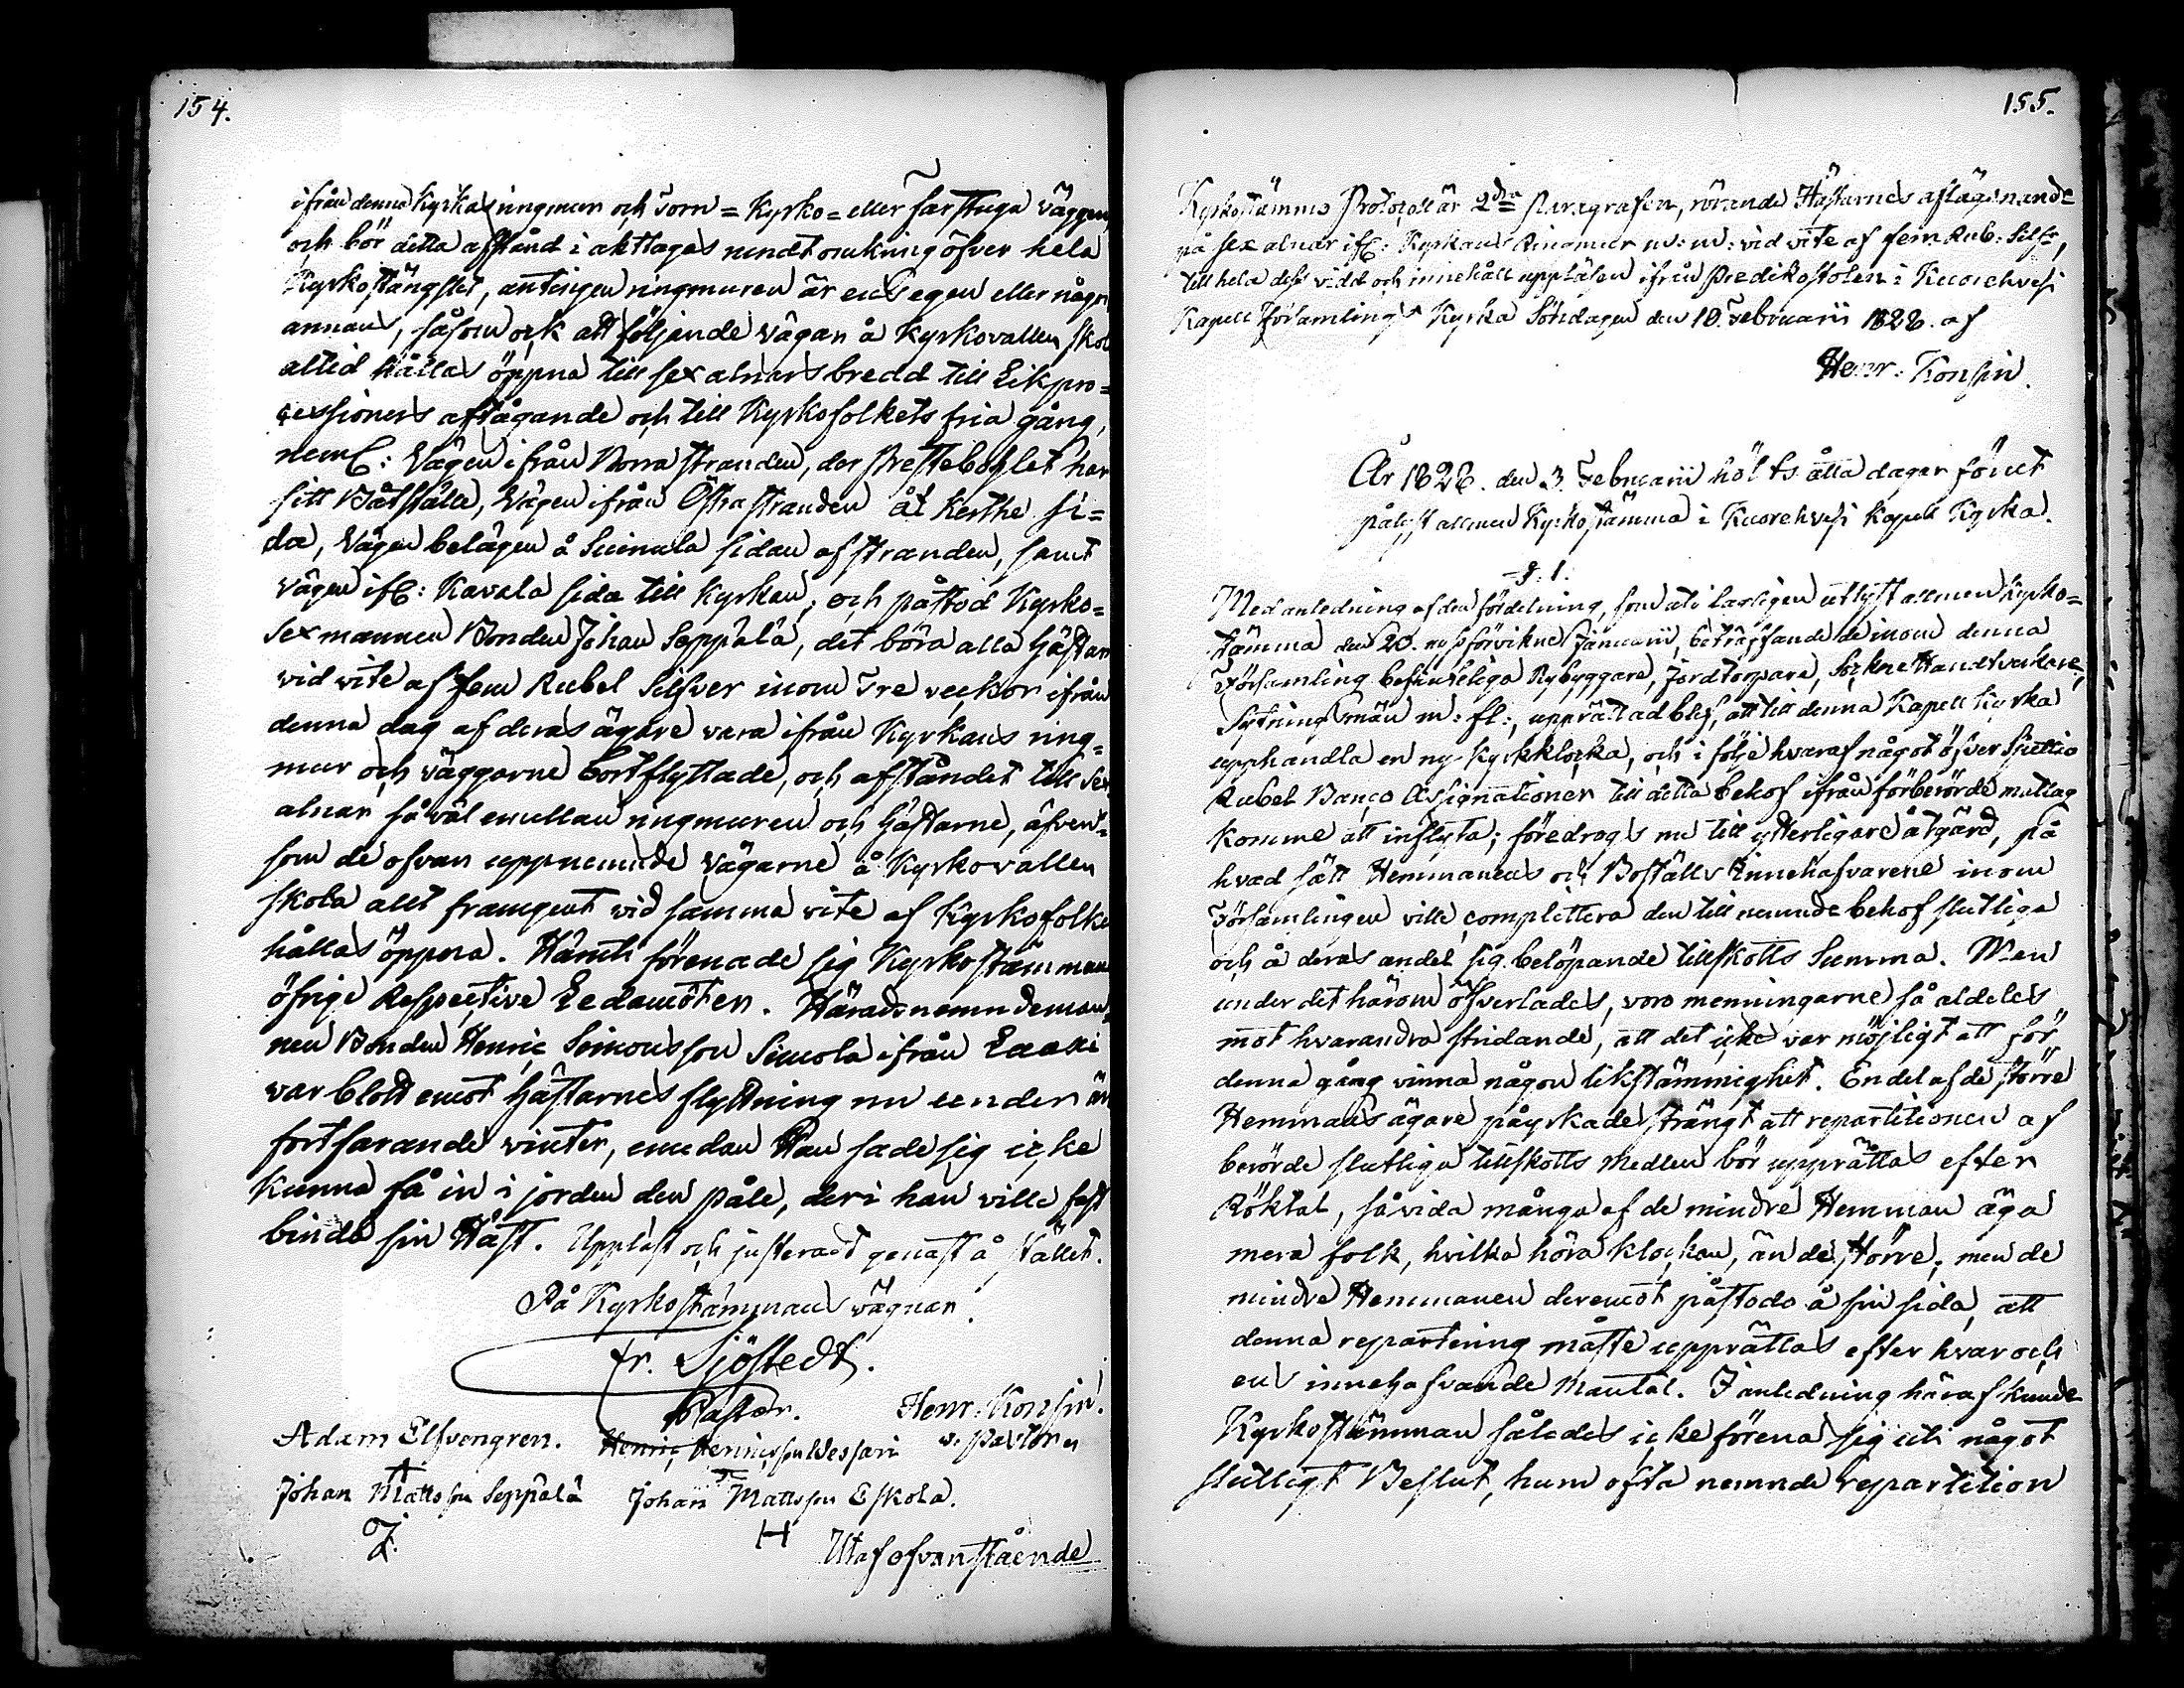 154.
ifrån denna Kyrkas ringmur och Torn= Kyrko= eller farstuga väggen,
och bör detta afstånd i akttagas rundt omkring öfver hela
Kyrkostängslet, antingen ringmuren är ens egen eller någon
annans, såsom ock att följande Vägar å Kyrkovallen skol
altid hållas öppna till sex alnars bredd till Likpro=
cessioners aftågande och till Kyrkofolkets fria gång,
neml: Vägen ifrån Norra stranden, der Prestebohlet har
sitt Båtställe, Vägen ifrån Östra stranden åt Kerthe si=
da, Vägen belägen å Suinula sidan af stranden, samt
Vägen ifr: Kavala sida till Kyrkan; och påstod Kyrko=
Sexmannen Bonden Johan Seppälä, det böra alla Hästar
vid vite af fem Rubel Silfver inom Tre veckor ifrån
denna dag af deras ägare vara ifrån Kyrkans ring=
mur och väggarne bortflyttade, och afståndet till Sex
alnar så väl emellan ringmuren och Hästarne, äfven=
som de ofvan uppnemnde Vägarne å Kyrkovallen
skola allt framgent vid samma vite af Kyrkofolke
hållas öppna. Häruti förenade sig Kyrkostämmans
öfrige Respective Ledamöter. Häradsnemndeman,
nen Bonden Henric Simonsson Simola ifrån Laasi
var blott emot Hästarnes flyttning nu under nu
fortfarande vinter, emedan Han sade sig icke
kunna få in i jorden den påle, deri han ville fast
binda sin Häst. Uppläst och justeradt genast å stället.
På Kyrkostämmans vägnar
Fr. Sjöstedt.
Pastor.
Henr. Konsin.
v. Pastor
Adam Elfvengren.
Henric Henricsson Vessari
Johan Mattsson Seppälä
Johan Mattsson Eskola.
H
Utaf ofvanstående
155.
Kyrkostämmo Protocoll är 2dra Paragrafen, rörande Hästarnes aflägsnande
på sex alnar ifr: Kyrkans Ringmur m: m: vid vite af fem Rub: Silfr,
till hela dess vidd och innehåll uppläsen ifrån Predikostolen i Kuorehvesi
Kapell Församlings Kyrka Söndagen den 10. Februarii 1828. af
Henr. Konsin.
År 1828. den 3. Februarii höllts åtta dagar förut
pålyst allmen Kyrkostämma i Kuorehvesi Kapell Kyrka.
§. 1.
Med anledning af den fördelning, som uti lagligen utlyst allmen Kyrko=
stämma den 20. nystförvikne Januarii, beträffande de inom denna
Församling befinteliga Nybyggare, Jordtorpare, Sockne Handtverkare,
Sytningsmän m: fl:, upprättad blef, att till denna Kapell Kyrka
upphandla en ny Kyrkklocka, och i följe hvaraf något öfver Sjuttio
Rubel Banco Assignationer till detta behof ifrån förberörde mattag
komme att inflyta; föredrogs nu till ytterligare åtgärd, på
hvad sätt Hemmanens och Boställs Innehafvarene inom
Församlingen ville complettera den till nemnde behof slutliga
och å deras andel sig belöpande tillskotts Summa. Men
under det härom öfverlades, voro meningarne så aldeles
mot hvarandra stridande, att det icke var möjligt att för
denna gång vinna någon likstämmighet. En del af de större
Hemmans ägare påyrkade strängt att repartitionen af
berörde slutliga tillskotts Medlen bör upprättas efter
Röktal, så vida många af de mindre Hemman äga
mera folk, hvilka höra klockan, än de större; men de
mindre Hemmanen deremot påstodo å sin sida, att
denna repartering måste upprättas efter hvar och
ens innehafvande Mantal. I anledning häraf kunde
Kyrkostämman således icke förena sig uti något
slutligt Beslut, hum ofta nemnde repartition